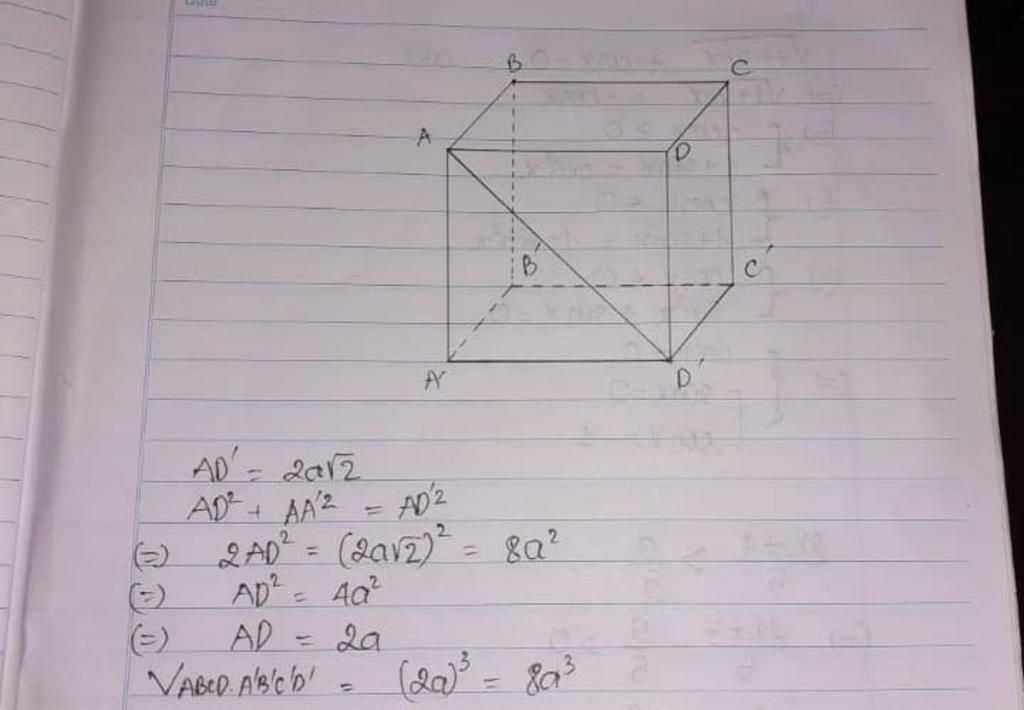 Date
B C
A D
B' C'
A' D'
AD' = 2a√2
AD² + AA'² = AD'²
(=) 2AD² = (2a√2)² = 8a²
(=) AD² = 4a²
(=) AD = 2a
VABCD.A'B'C'D' = (2a)³ = 8a³